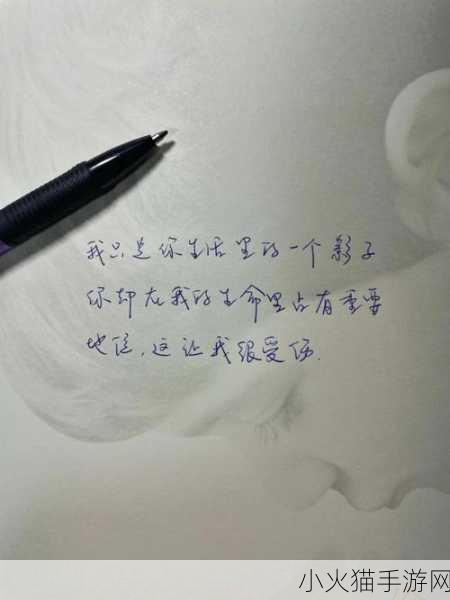 我只是你生活里的一个影子
你却在我的生命里占有重要
地位，这让我很受伤.
小火猫手游网